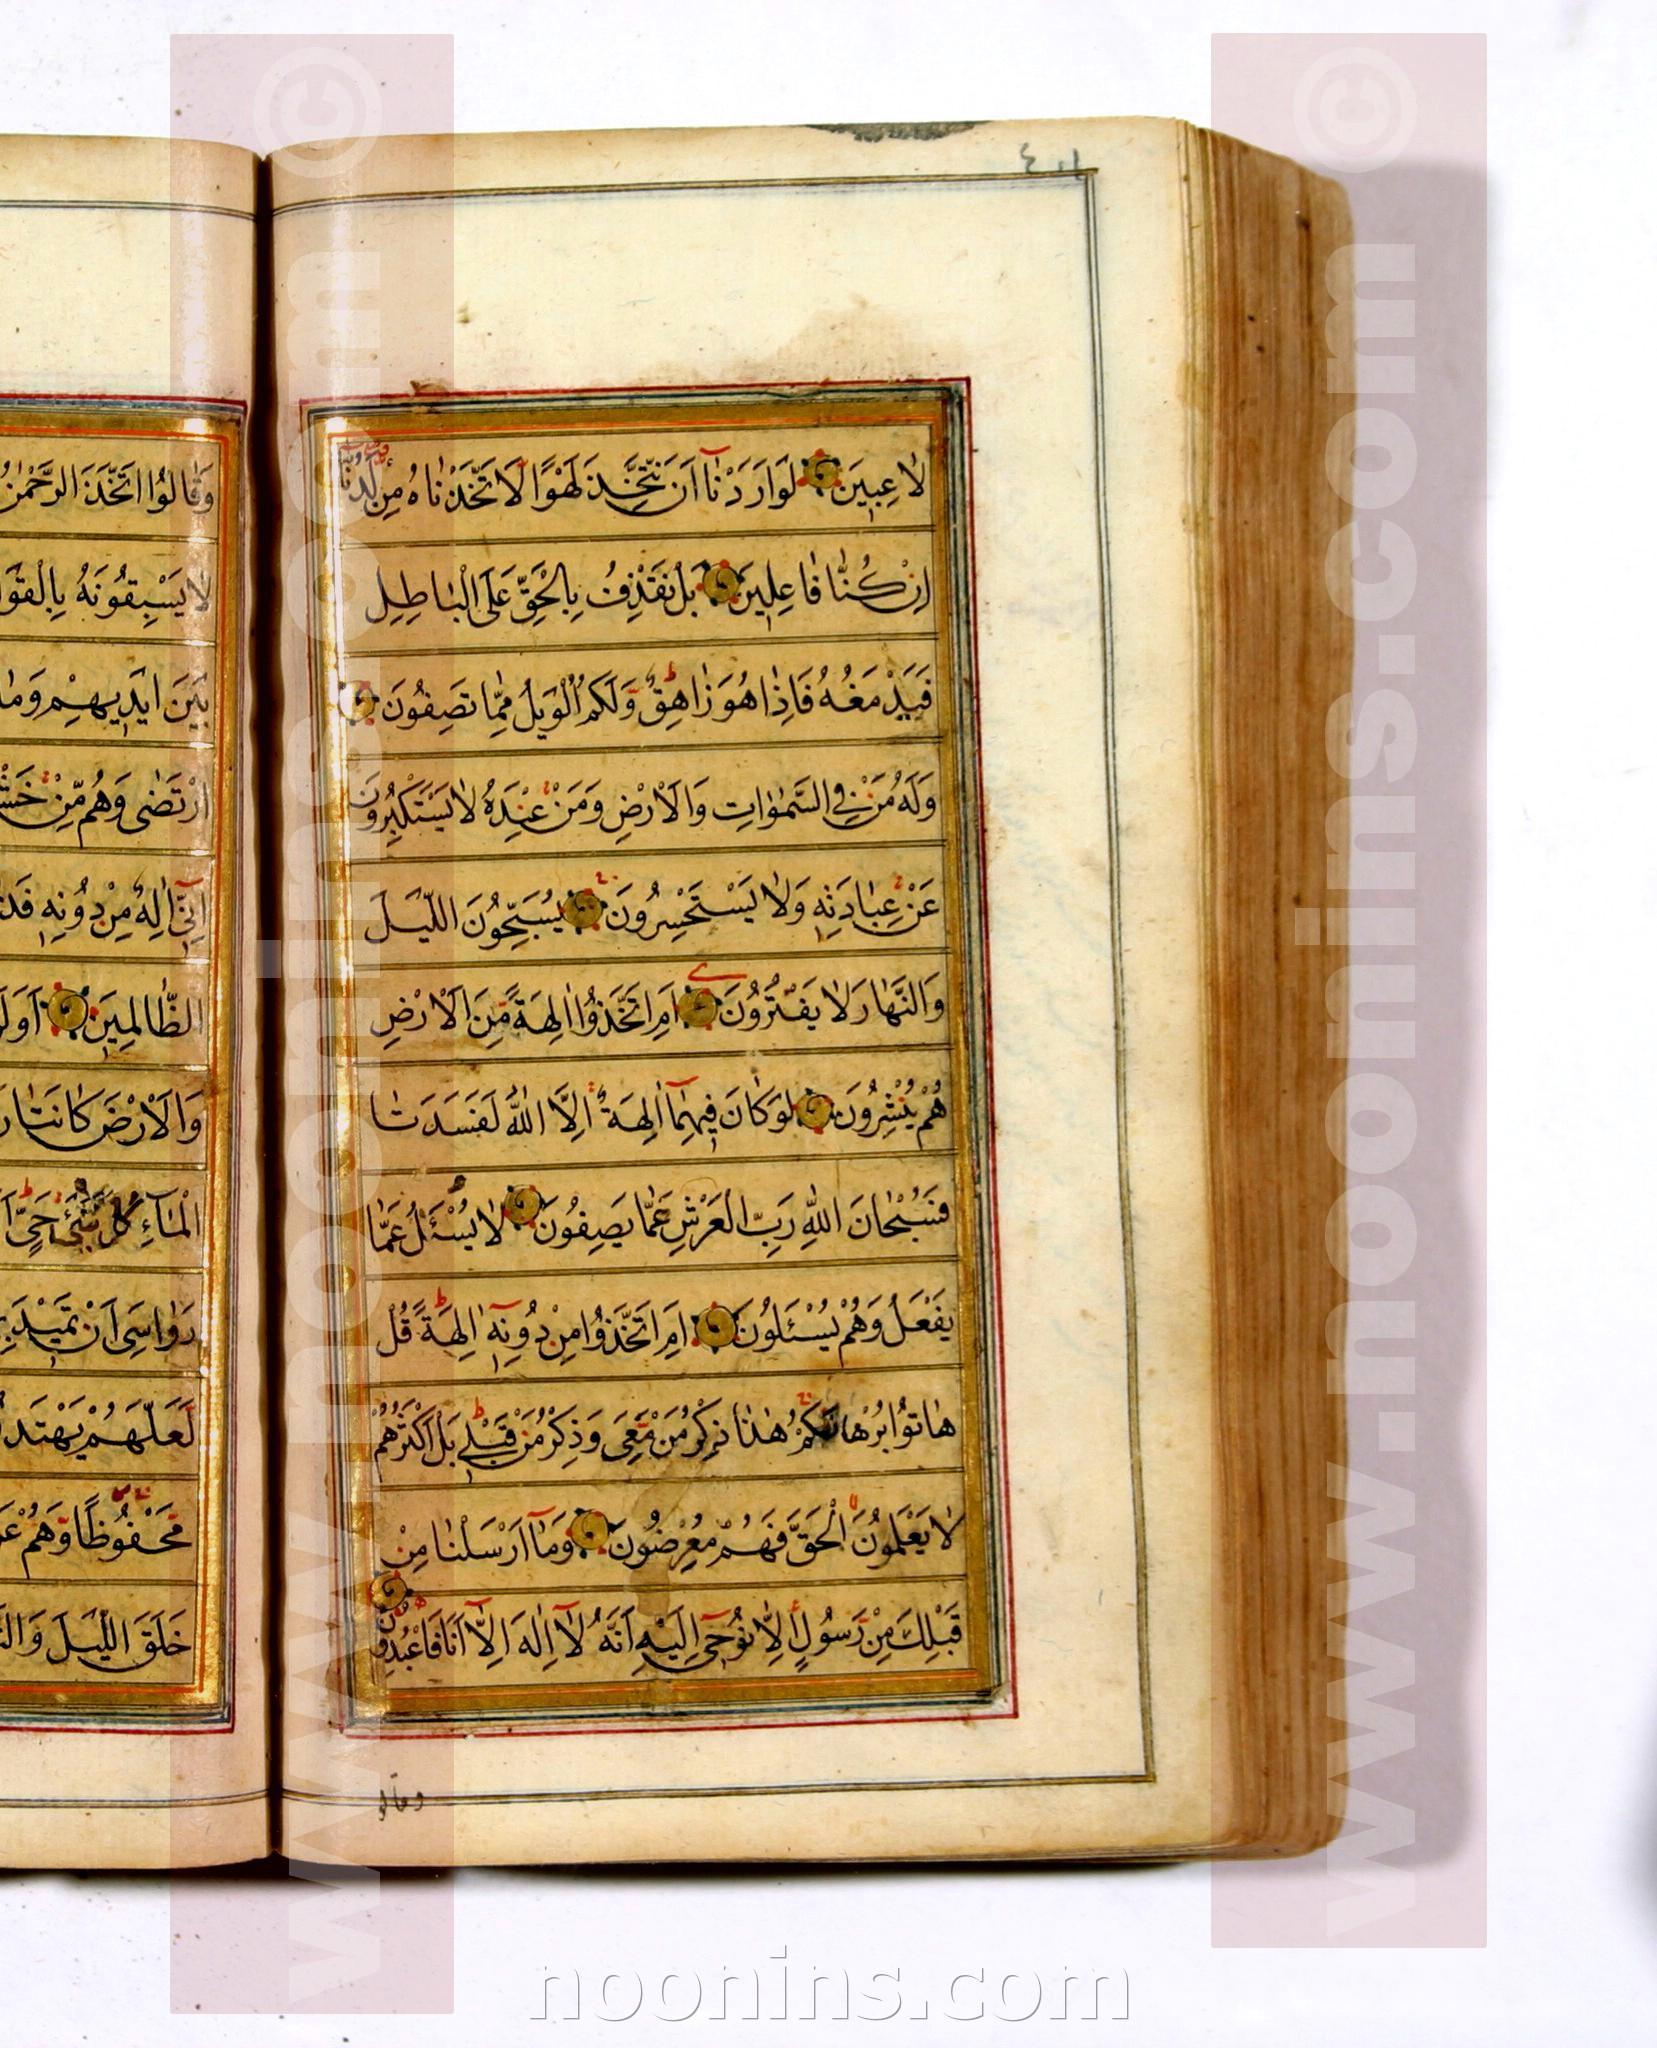 لَاعِبِينَ لَوْ اَرَدْنَآ اَنْ نَتَّخِذَ لَهْوًا لَاتَّخَذْنَاهُ مِنْ لَدُنَّا
اِنْ كُنَّا فَاعِلِينَ بَلْ نَقْذِفُ بِالْحَقِّ عَلَى الْبَاطِلِ
فَيَدْمَغُهُ فَاِذَا هُوَ زَاهِقٌ وَلَكُمُ الْوَيْلُ مِمَّا تَصِفُونَ
وَلَهُ مَنْ فِى السَّمٰوَاتِ وَالْاَرْضِ وَمَنْ عِنْدَهُ لَا يَسْتَكْبِرُونَ
عَنْ عِبَادَتِهِ وَلَا يَسْتَحْسِرُونَ يُسَبِّحُونَ اللَّيْلَ
وَالنَّهَارَ لَا يَفْتُرُونَ اَمِ اتَّخَذُوٓا اٰلِهَةً مِنَ الْاَرْضِ
هُمْ يُنْشِرُونَ لَوْ كَانَ فِيهِمَآ اٰلِهَةٌ اِلَّا اللّٰهُ لَفَسَدَتَا
فَسُبْحَانَ اللّٰهِ رَبِّ الْعَرْشِ عَمَّا يَصِفُونَ لَا يُسْئَلُ عَمَّا
يَفْعَلُ وَهُمْ يُسْئَلُونَ اَمِ اتَّخَذُوا مِنْ دُونِهِٓ اٰلِهَةً قُلْ
هَاتُوا بُرْهَانَكُمْ هٰذَا ذِكْرُ مَنْ مَعِىَ وَذِكْرُ مَنْ قَبْلِى بَلْ اَكْثَرُهُمْ
لَا يَعْلَمُونَ الْحَقَّ فَهُمْ مُعْرِضُونَ وَمَآ اَرْسَلْنَا مِنْ
قَبْلِكَ مِنْ رَسُولٍ اِلَّا نُوحِىٓ اِلَيْهِ اَنَّهُ لَآ اِلٰهَ اِلَّآ اَنَا فَاعْبُدُونِ
وقالو
وَقَالُوا اتَّخَذَ الرَّحْمٰنُ
لَا يَسْبِقُونَهُ بِالْقَوْ
بَيْنَ اَيْدِيهِمْ وَمَا
ارْتَضٰى وَهُمْ مِنْ خَشْ
اِنِّىٓ اِلٰهٌ مِنْ دُونِهِ فَذ
الظَّالِمِينَ اَوَلَ
وَالْاَرْضَ كَانَتَا ر
الْمَآءِ كُلَّ شَىْءٍ حَىٍّ ا
رَوَاسِىَ اَنْ تَمِيدَ بِ
لَعَلَّهُمْ يَهْتَد
مَحْفُوظًا وَهُمْ عَ
خَلَقَ اللَّيْلَ وَالن
www.noonins.com ©
www.noonins.com ©
noonins.com